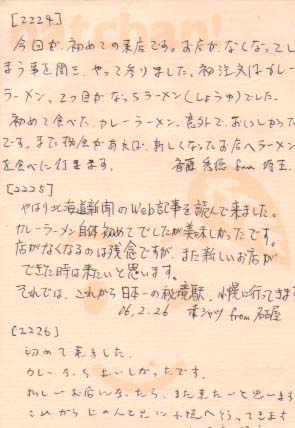 [2224]
今回が、初めての来店です。お店が、なくなってし
まう事を聞き、やって参りました。初注文はカレー
ラーメン、2つ目がなっちラーメン(しょうゆ)でした。
初めて食べた、カレーラーメン、意外で、おいしかった
です。また機会があれば、新しくなったお店へラーメン
を食べに行きます。 斉藤 from 埼玉
[2225]
やはり北海道新聞のWeb記事を読んで来ました。
カレーラーメン自体初めてでしたが美味しかったです。
店がなくなるのは残念ですが、また新しいお店が
できた時は来たいと思います。
それでは、これから日本一の秘境駅、小幌に行ってきます
06.2.26 赤シャツ from 名古屋
[2226]
初めて来ました。
カレーらーおいしかったです。
新しいお店になったら、また来たいと思います
これから 小幌へ